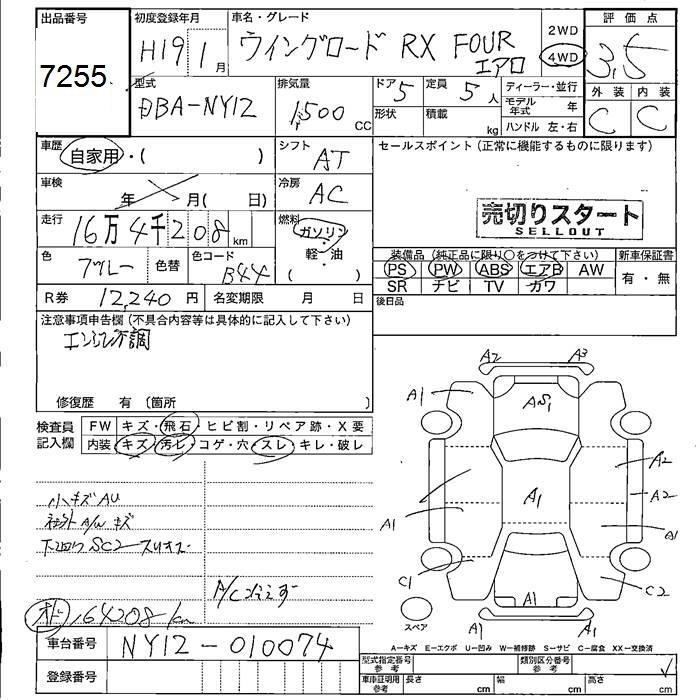 出品番号
7255
初度登録年月
H19 1月
車名・グレード
ウイングロード RX FOUR
エアロ
2WD
4WD
評価点
3.5
型式
DBA-NY12
排気量
1,500 CC
ドア 5
定員 5人
形状
積載 kg
ディーラー・並行
モデル年式 年
ハンドル 左・右
外装 内装
C C
車歴
自家用・( )
シフト
AT
セールスポイント (正常に機能するものに限ります)
車検
年 月( 日)
冷房
AC
売切りスタート
SELLOUT
走行
16万4千208km
燃料
ガソリン・
軽・油
( )
色
ブルー
色替
色コード
B44
装備品 (純正品に限り○をつけて下さい)
新車保証書
PS PW ABS エアB AW
SR ナビ TV カワ
有・無
R券 12,240円
名変期限 月 日
後日品
注意事項申告欄 (不具合内容等は具体的に記入して下さい)
エンジン不調
修復歴 有 〔箇所 〕
検査員
記入欄
FW キズ・飛石・ヒビ割・リペア跡・X要
内装 キズ・汚レ・コゲ・穴・スレ・キレ・破レ
小キズAU
社外A/Wキズ
下回りSC2
オド 164208km
車台番号
NY12-010074
登録番号
A2 A3
A1
AS1
A2
A1
A2
A1
A1
C1
C2
スペア
A1
A1 A1
A-キズ E-エクボ U-凹み W-補修跡 S-サビ C-腐食 XX-交換済
型式指定番号
参考
類別区分番号
参考
車庫証明用
参考
長さ cm
幅 cm
高さ cm